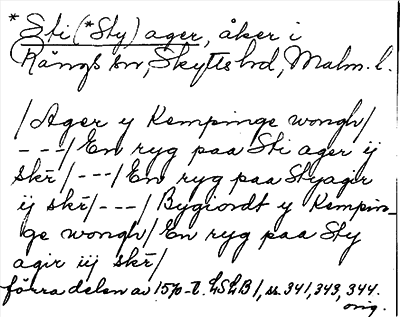 *Sti (*Sty) ager, åker i
Rängs sn, Skytts hd, Malm. l.
/Ager y Kempinge wongh/
---/En ryg paa Sti ager ij
skr̄/---/En ryg paa Styager
ij skr̄/---/Bygiordt y Kempin-
ge wongh/En ryg paa Sty
agir iij skr̄/
förra delen av 1570-t. LSLB 1, ss. 341, 343, 344.
orig.